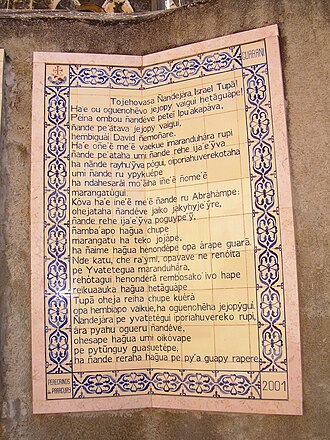 GUARANI
Tojehovasa Ñandejára, Israel Tupã!
Ha'e ou oguenohẽvo jejopy vaigui hetãguápe!
Péina ombou ñandéve peteĩ Ipu'akapáva,
ñande pe'ãtava jejopy vaigui,
hembiguái David ñemoñare.
Ha'e oñe'ẽ me'ẽ vaekue maranduhára rupi
ñande pe'ataha umi ñande rehe ija'e'ỹva
ha ñande rayhu'ỹva pógui, oiporiahuverekotaha
umi ñande ru ypykuépe
ha ndahesarái mo'ãha iñe'ẽ ñome'ẽ
marangatúgui.
Kóva ha'e iñe'ẽ me'ẽ ñande ru Abrahámpe:
ohejataha ñandéve jako jakyhyje'ỹre,
ñande rehe ija'e'ỹva poguype'ỹ,
ñamba'apo haĝua chupe
marangatu ha teko jojápe,
ha ñaime haĝua henondépe opa árape guarã.
Nde katu, che ra'ymi, opavave ne renóita
pe Yvatetegua maranduhára,
rehótagui henonderã rembosako'ivo hape
reikuaauka haĝua hetãguápe
Tupã oheja reiha chupe kuéra
opa hembiapo vaikue, ha oguenohẽha jejopýgui.
Ñandejára pe yvatetegui iporiahuvereko rupi,
ára pyahu ogueru ñandéve,
ohesape haĝua umi oikóvape
pe pytũnguy guasuetépe,
ha ñande reraha haĝua pe py'a guapy rapére.
PEREGRINOS
PARAGUAY
2001